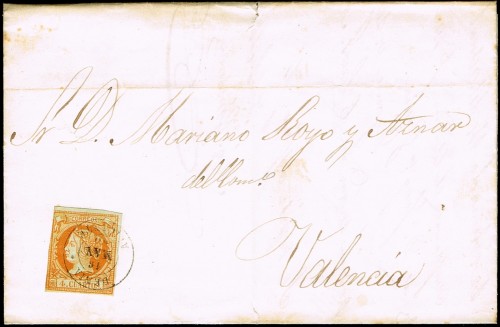 Sr D. Mariano Royo y Aznar
del Com.º
Valencia
CORREOS
4 CUARTOS